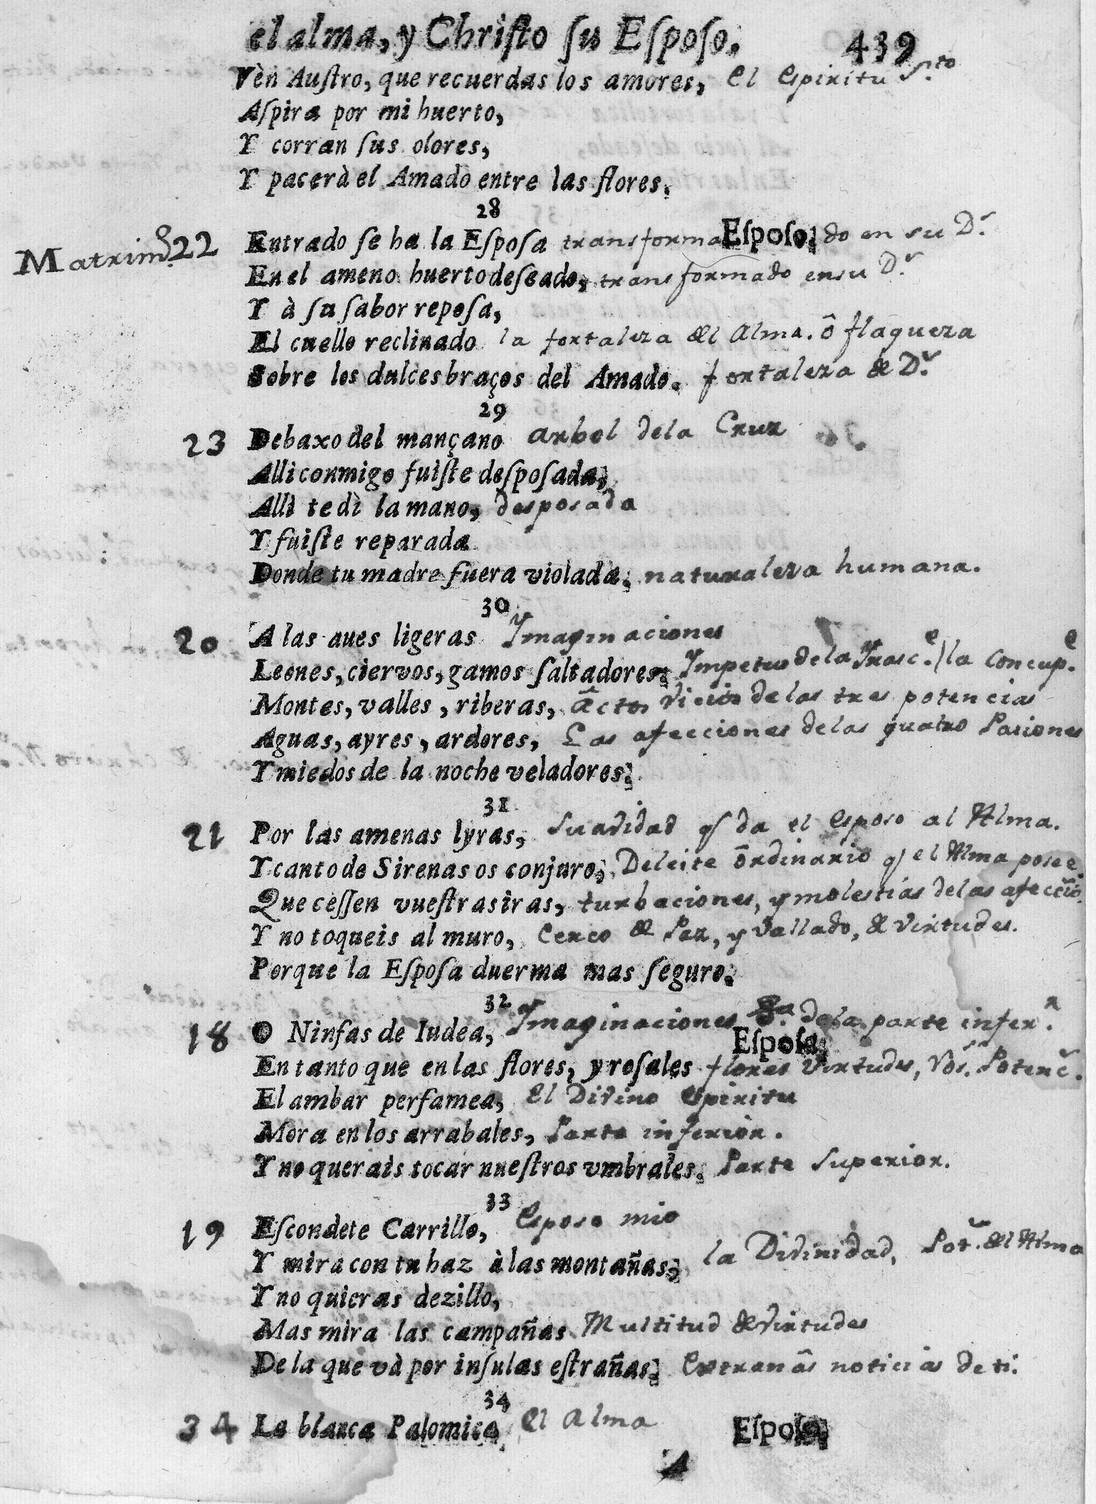 el alma, y Christo su Esposo. 439
Vèn Austro, que recuerdas los amores, el Espiritu S.to
Aspira por mi huerto,
Y corran sus olores,
Y pacerà el Amado entre las flores.
28
Matrim.o 22 Entrado se ha la Esposa transforma Esposo. do en su D.s
En el ameno huerto deseado, transformado en su D.s
Y à su sabor reposa,
El cuello reclinado la fortaleza del Alma. ô flaqueza
Sobre los dulces braços del Amado. fortaleza de D.s
29
23 Debaxo del mançano arbol dela Cruz
Alli conmigo fuiste desposada,
Alli te dì la mano, desposada
Y fuiste reparada
Donde tu madre fuera violada. naturaleza humana.
30
20 A las aues ligeras Ymaginaciones
Leones, ciervos, gamos saltadores, Impetus de la Yrasc.e / la concup.e
Montes, valles, riberas, âctos viciōs de las tres potencias
Aguas, ayres, ardores, Las afecciones de las quatro Pasiones
Y miedos de la noche veladores.
31
21 Por las amenas lyras, Suavidad q̃ da el esposo al Alma.
Y canto de Sirenas os conjuro, Deleite ōrdinario q̃ el Alma posee.
Que cessen vuestras iras, turbaciones, y molestias de las afecciō.
Y no toqueis al muro, Cerco de Paz, y Vallado, de virtudes.
Porque la Esposa duerma mas seguro.
32
18 O Ninfas de Iudea, Ymaginaciones de la parte infer.r
Esposa.
En tanto que en las flores, y rosales flores virtudes, ros.s Potenc.s
El ambar perfumea, El Divino espiritu
Mora en los arrabales, Parte inferiòr.
Y no querais tocar nuestros vmbrales. Parte Superior.
33
19 Escondete Carrillo, Esposo mio
Y mira con tu haz à las montañas, la Divinidad, Pot.s del Alma
Y no quieras dezillo,
Mas mira las campañas Multitud de virtudes
De la que và por insulas estrañas. extranâs noticias de ti.
34
34 La blanca Palomica El Alma Esposo.